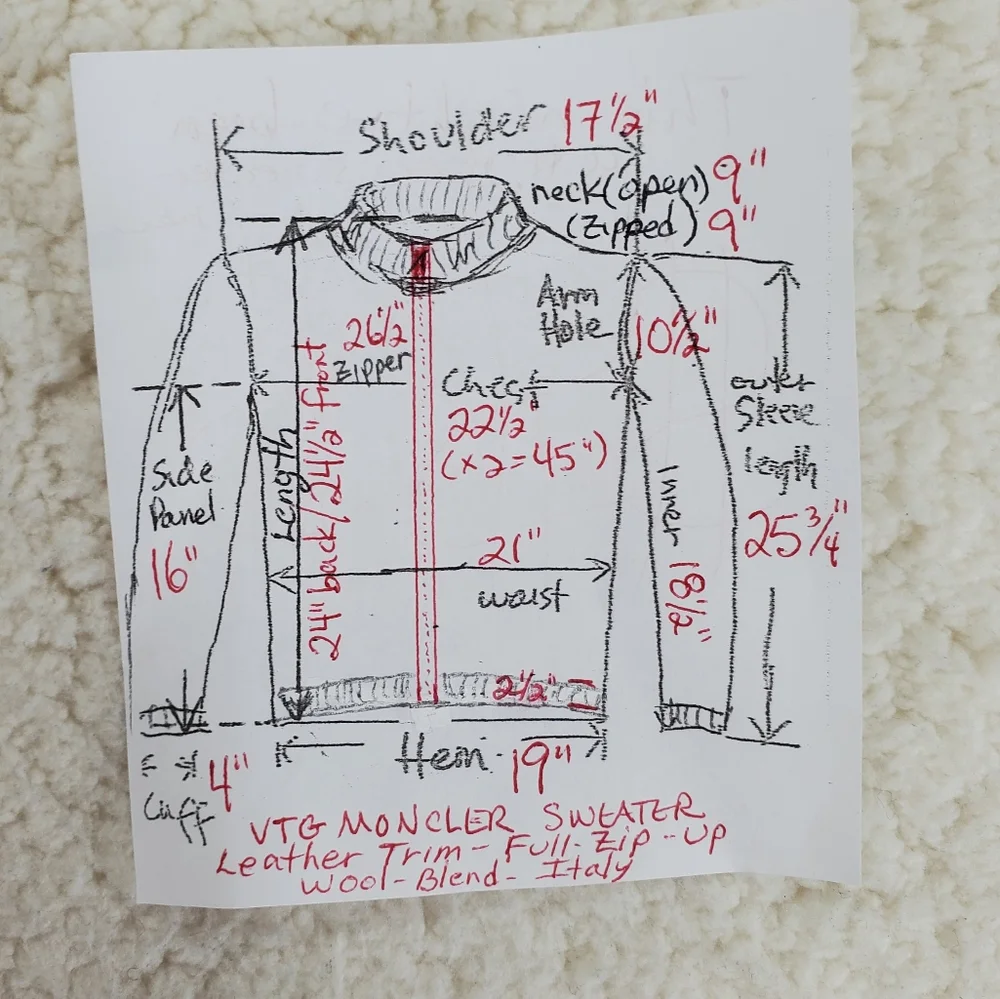 Shoulder 17 1/2"
neck (open) 9"
(zipped) 9"
Arm
Hole
10 1/2"
26 1/2"
zipper
Chest
22 1/2"
(x2=45")
outer
Sleeve
Length
25 3/4"
Side
Panel
16"
Length
24" back/24 1/2" front
Inner 18 1/2"
21"
waist
2 1/2"
Hem 19"
4"
Cuff
VTG MONCLER SWEATER
Leather Trim - Full-Zip-Up
Wool-Blend-Italy